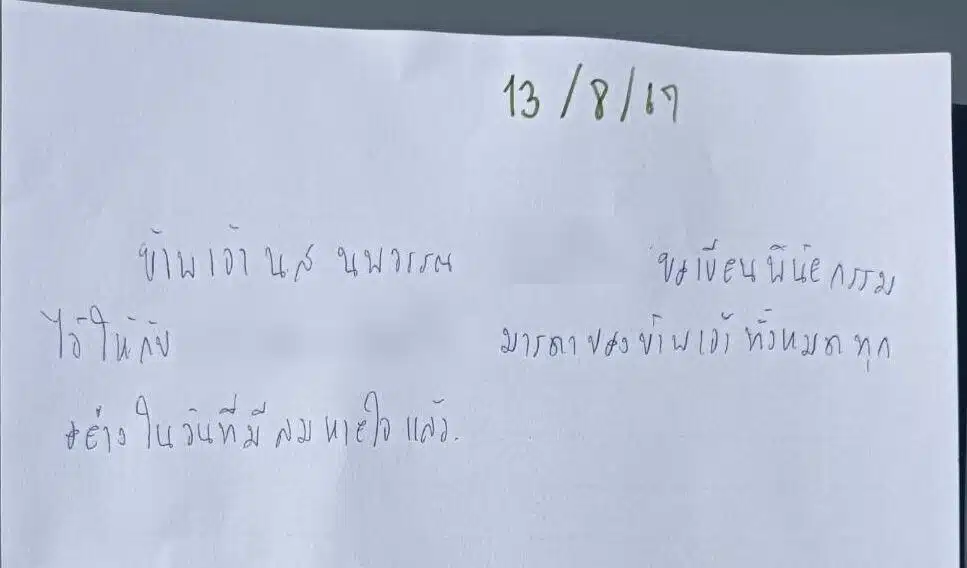 13/8/67
ข้าพเจ้า น.ส นพวรรณ ขอเขียนพินัยกรรม
ไว้ให้กับ มารดาของข้าพเจ้าทั้งหมดทุก
อย่างในวันที่มีลมหายใจแล้ว.